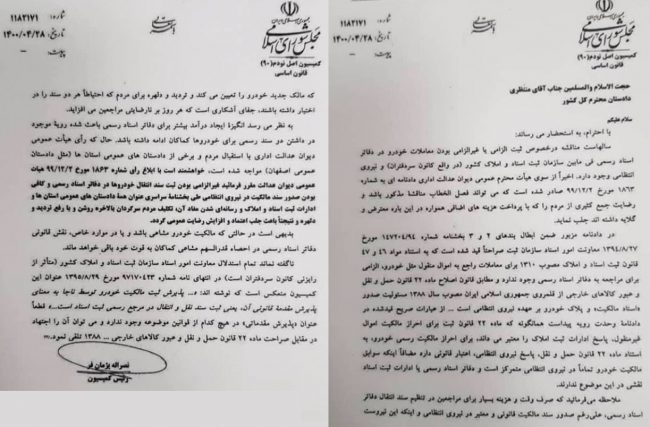 شماره: ۱۱۸۲۱۷۱
تاریخ: ۱۴۰۰/۰۴/۲۸
پیوست:
جمهوری اسلامی ایران
مجلس شورای اسلامی
کمیسیون اصل نودم (۹۰)
قانون اساسی
حجت الاسلام والمسلمین جناب آقای منتظری
دادستان محترم کل کشور
سلام علیکم
با احترام، به استحضار می رساند:
سالهاست مناقشه درخصوص ثبت الزامی یا غیرالزامی بودن معاملات خودرو در دفاتر
اسناد رسمی فی مابین سازمان ثبت اسناد و املاک کشور (در واقع کانون سردفتران) و نیروی
انتظامی وجود دارد. اخیراً از سوی هیأت عمومی دیوان عدالت اداری دادنامه ای به شماره
۱۸۶۳ مورخ ۹۹/۱۲/۲ صادر شده است که می تواند فصل الخطاب مناقشه مذکور باشد و
رضایت جمع کثیری از مردم را که با پرداخت هزینه های اضافی همواره در این باره معترض و
گلایه داشته اند جلب نماید.
در دادنامه مزبور ضمن ابطال بندهای ۲ و ۳ بخشنامه شماره ۱۴۷۲۰۴/۹۴ مورخ
۱۳۹۴/۸/۲۷ معاونت امور اسناد سازمان ثبت صراحتاً قید شده است که به استناد مواد ۴۶ و ۴۷
قانون ثبت اسناد و املاک مصوب ۱۳۱۰ برای معاملات راجع به اموال منقول مثل خودرو، الزامی
برای مراجعه به دفاتر اسناد رسمی وجود ندارد و مطابق قانون اصلاح ماده ۲۲ قانون حمل و نقل
و عبور کالاهای خارجی از قلمروی جمهوری اسلامی ایران مصوب سال ۱۳۸۸ مسئولیت صدور
«اسناد مالکیت» و پلاک خودرو بر عهده نیروی انتظامی است... از عبارات صریح قیدشده در
دادنامۀ وحدت رویه پیداست همانگونه که ماده ۲۲ قانون ثبت برای احراز مالکیت اموال
غیرمنقول، پاسخ ادارات ثبت املاک را معتبر می داند، برای احراز مالکیت رسمی خودرو، به
استناد ماده ۲۲ قانون حمل و نقل، پاسخ نیروی انتظامی، اعتبار قانونی دارد مضافاً اینکه سوابق
مالکیت خودرو تماماً در نیروی انتظامی متمرکز است و دفاتر اسناد رسمی یا ادارات ثبت اسناد
نقشی در این موضوع ندارند.
ملاحظه می‌فرمائید که صرف وقت و هزینه بسیار برای مراجعین در تنظیم سند انتقال دفاتر
اسناد رسمی، علی‌رغم صدور سند مالکیت قانونی و معتبر در نیروی انتظامی و اینکه این نیروست
شماره: ۱۱۸۲۱۷۱
تاریخ: ۱۴۰۰/۰۴/۲۸
پیوست:
جمهوری اسلامی ایران
مجلس شورای اسلامی
کمیسیون اصل نودم (۹۰)
قانون اساسی
که مالک جدید خودرو را تعیین می کند و تردید و دلهره برای مردم که احتیاطاً هر دو سند را در
اختیار داشته باشند، جفای آشکاری است که هر روز بر نارضایتی مراجعین می افزاید.
به نظر می رسد انگیزۀ ایجاد درآمد بیشتر برای دفاتر اسناد رسمی باعث شده رویۀ موجود
در داشتن دو سند رسمی برای خودروها کماکان ادامه داشته باشد. حال که رأی هیأت عمومی
دیوان عدالت اداری با استقبال مردم و برخی از دادستان های عمومی استان ها (مثل دادستان
عمومی اصفهان) مواجه شده است، خواهشمند است با ابلاغ رأی شماره ۱۸۶۳ مورخ ۹۹/۱۲/۲ هیات
عمومی دیوان عدالت مقرر فرمائید غیرالزامی بودن ثبت سند انتقال خودروها در دفاتر اسناد رسمی و کافی
بودن صدور سند مالکیت در نیروی انتظامی طی بخشنامۀ سراسری عنوان همۀ دادستان های عمومی استان ها و
ادارات ثبت اسناد و املاک و رسانه‌ای شدن مفاد آن، تکلیف مردم سرگردان بالاخره روشن و با رفع تردید و
دلهره و نتیجتاً باعث جلب اعتماد و افزایش رضایت عمومی گردد.
بدیهی است در حالتی که مالکیت خودرو مشاعی باشد و یا در موارد خاص، نقش قانونی
دفاتر اسناد رسمی در احصاء قدرالسهم مشاعی کماکان به قوت خود باقی خواهد ماند.
ناگفته نماند تمام استدلال معاونت امور اسناد سازمان ثبت اسناد و املاک کشور (متأثر از
رایزنی کانون سردفتران است) در انتهای نامه شماره ۹۷۱۷۰۴۳۳ مورخ ۱۳۹۵/۸/۲۹ عنوان این
کمیسیون منعکس است که نوشته اند: «.. پذیرش ثبت مالکیت خودرو توسط ناجا به معنای
پذیرش مقدمۀ قانونی آن، یعنی ثبت سند نقل و انتقال در مرجع رسمی ثبت اسناد است...» قطعاً
عنوان «پذیرش مقدماتی» در هیچ کدام از قوانین موضوعه وجود ندارد و می توان آن را اجتهاد
در مقابل صراحت ماده ۲۲ قانون حمل و نقل و عبور کالاهای خارجی ... ۱۳۸۸ تلقی نمود.
نصراله پژمان فر
رئیس کمیسیون